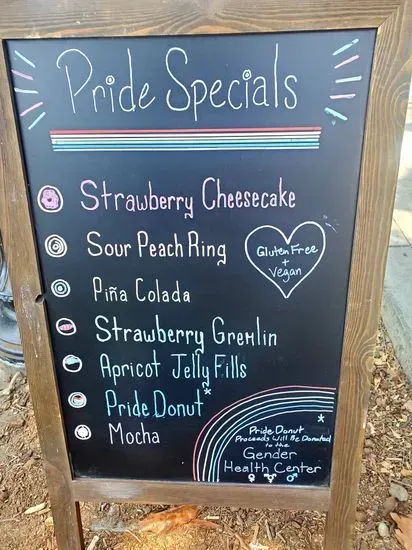 Pride Specials
Strawberry Cheesecake
Sour Peach Ring
Gluten Free
+
Vegan
Piña Colada
Strawberry Gremlin
Apricot Jelly Fills
Pride Donut*
Mocha
*
Pride Donut
Proceeds Will Be Donated
to the
Gender
Health Center